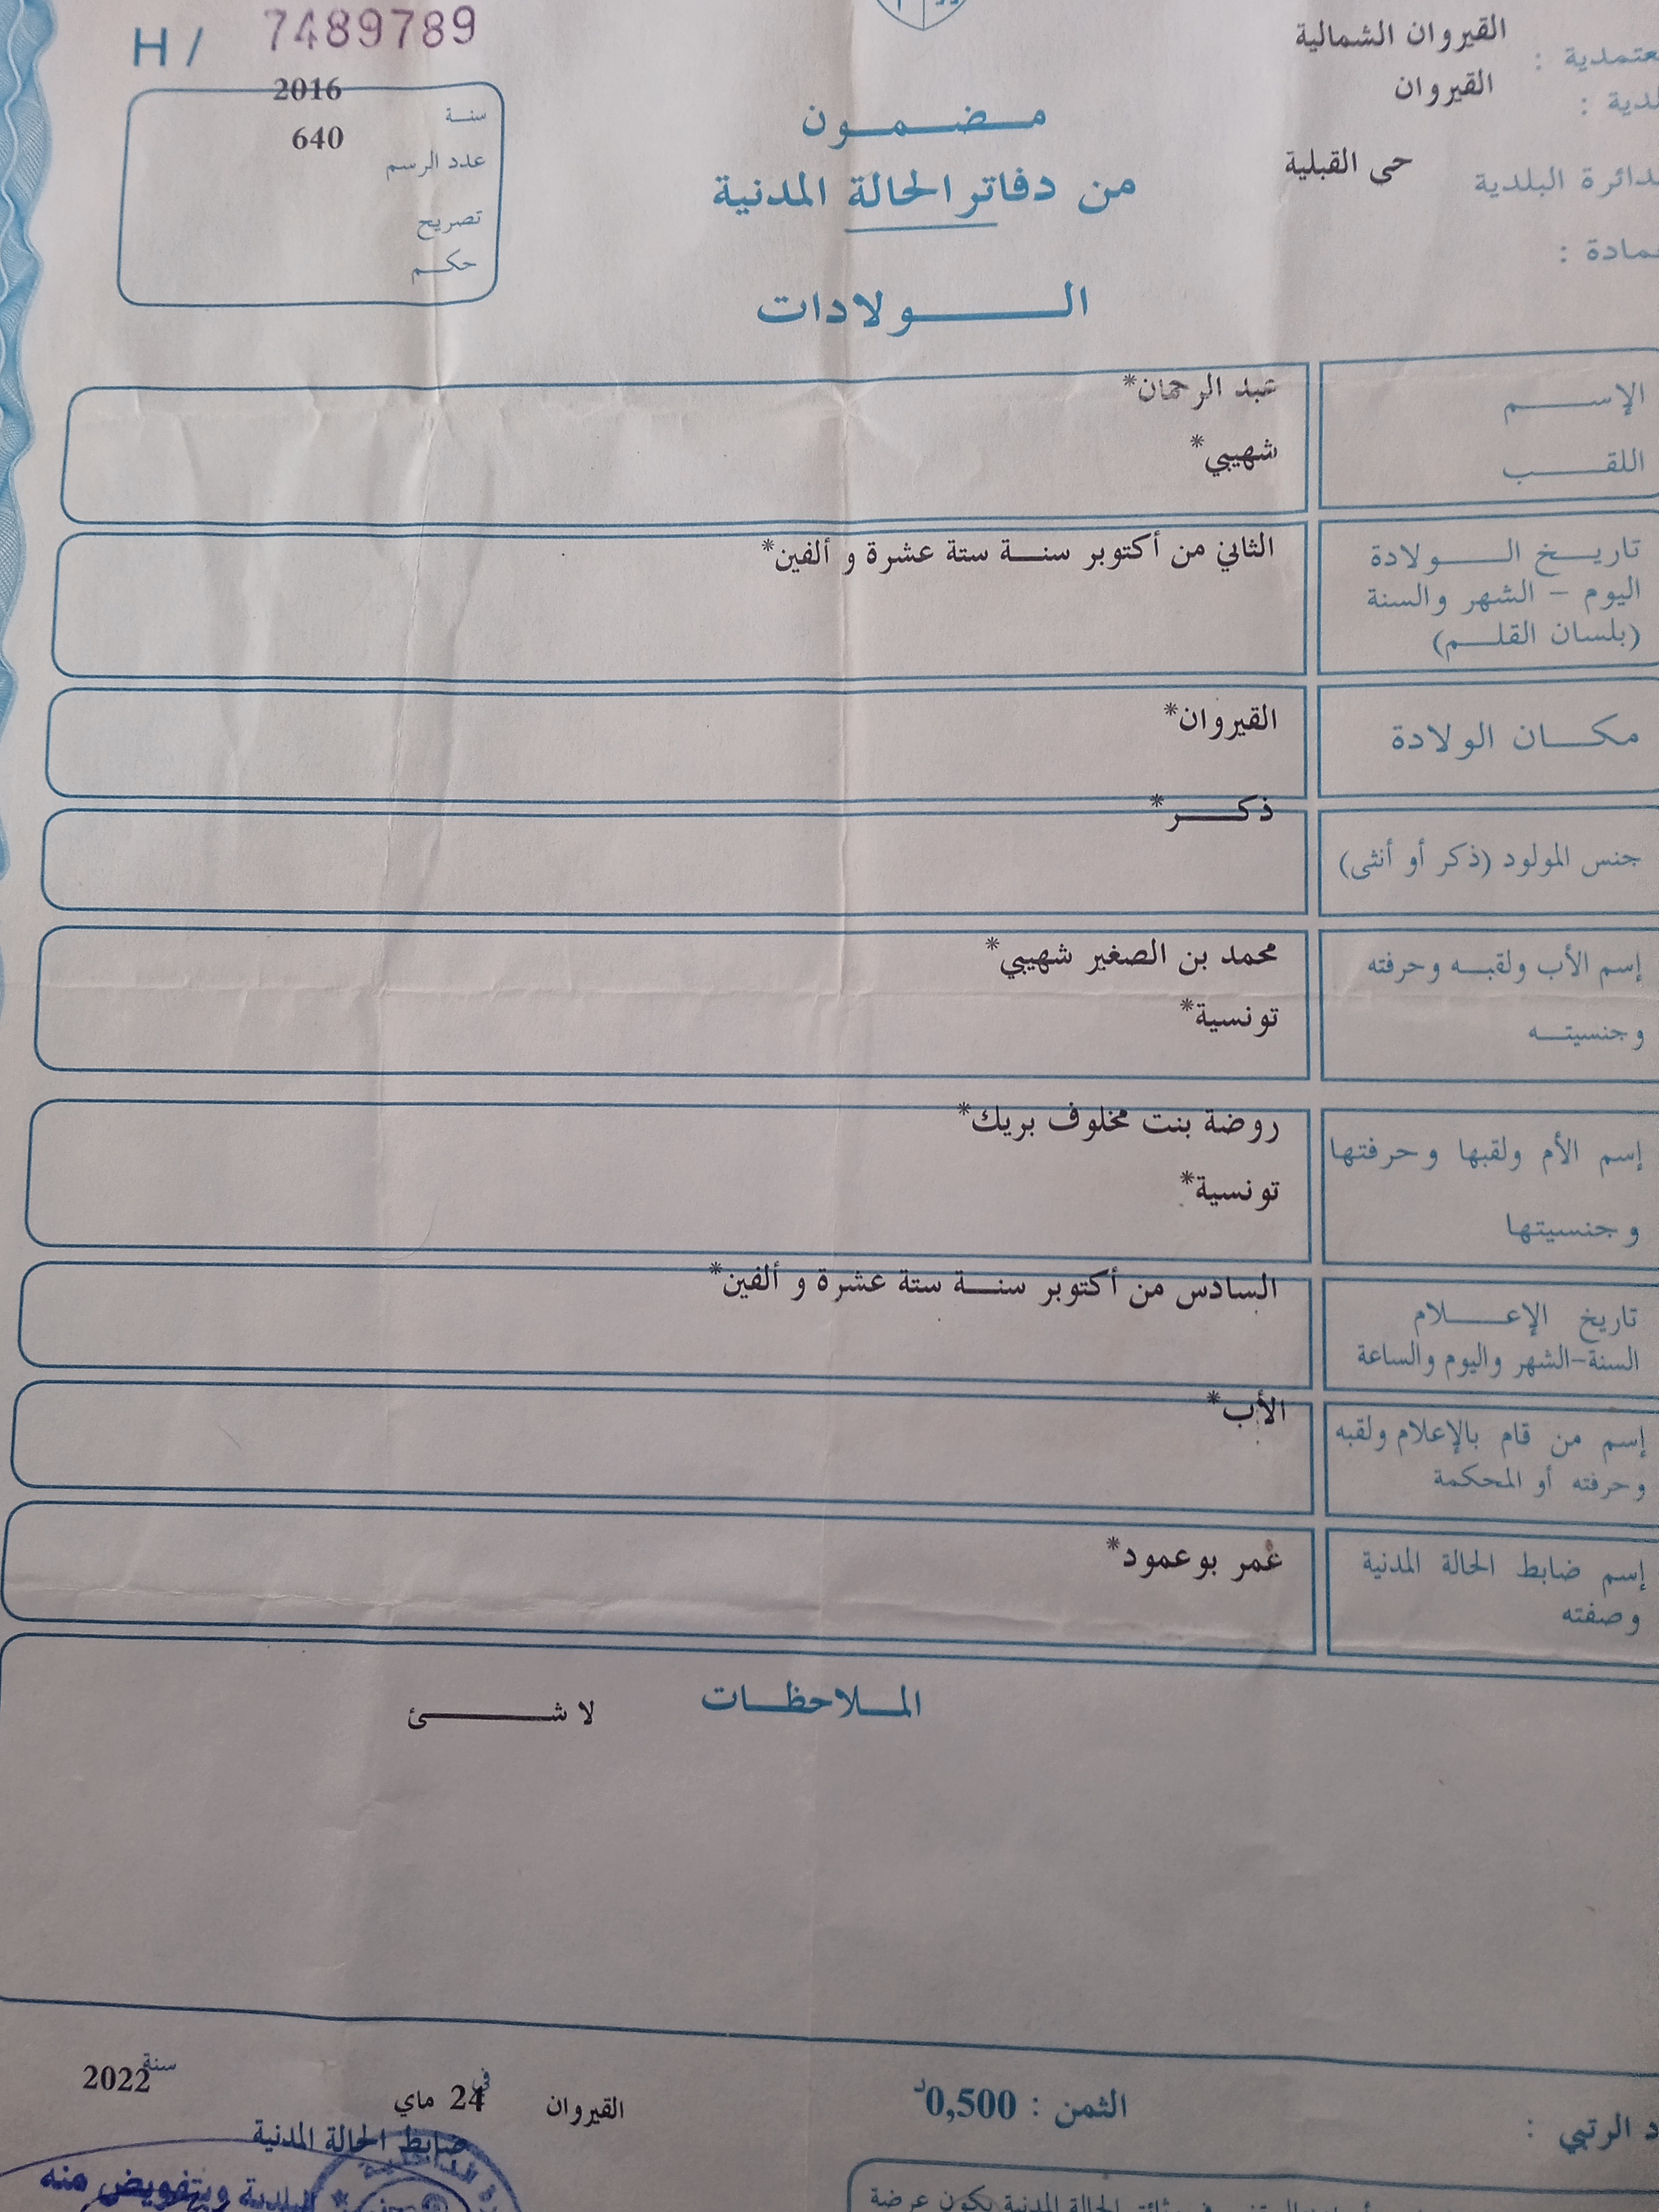 القيروان الشمالية
القيروان
حى القبلية
الدائرة البلدية
H / 7489789
سنة 2016
عدد الرسم 640
تصريح
حكم
مضمون
من دفاتر الحالة المدنية
الولادات
الإسم عبد الرحمان*
اللقب شهيبي*
تاريخ الولادة الثاني من أكتوبر سنة ستة عشرة و ألفين*
اليوم - الشهر والسنة
(بلسان القلم)
مكان الولادة القيروان*
جنس المولود (ذكر أو أنثى) ذكر*
إسم الأب ولقبه وحرفته محمد بن الصغير شهيبي*
وجنسيته تونسية*
إسم الأم ولقبها وحرفتها روضة بنت مخلوف بريك*
وجنسيتها تونسية*
تاريخ الإعلام السادس من أكتوبر سنة ستة عشرة و ألفين*
السنة-الشهر واليوم والساعة
إسم من قام بالإعلام ولقبه الأب*
وحرفته أو المحكمة
إسم ضابط الحالة المدنية عمر بوعمود*
وصفته
الملاحظات لا شئ
الرتبي :
الثمن : 0,500د
القيروان في 24 ماي سنة 2022
ضابط الحالة المدنية
البلدية وبتفويض منه
الحالة المدنية يكون عرضة